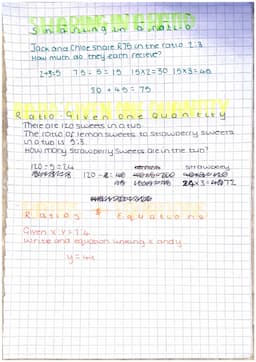 SHARING IN A RATIO
Sharing in a ratio
Jack and Chloe share R75 in the ratio 2:3
How much do they each recieve?
2+3=5 75÷5=15 15×2=30 15×3=45
30 + 45 = 75
RATIO GIVEN ONE QUANTITY
Ratio: Given one quantity
There are 120 sweets in a tub
The ratio of lemon sweets to strawberry sweets
in a tub is 5:3
How many strawberry sweets are in the tub?
120÷5=24 strawberry
24×3=72
Ratios & Equations
Given x:y = 1:4
write and equation linking x and y
y=4x